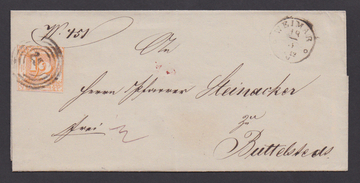 N. 151
WEIMAR
An
Herrn Pfarrer Steinacker
zu
frei
Buttelstedt.